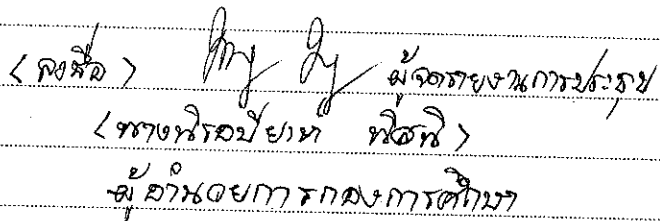 (ลงชื่อ) ผู้จดรายงานการประชุม
(นางนิรอบียะห์ นิสนิ)
ผู้อำนวยการกองการศึกษา